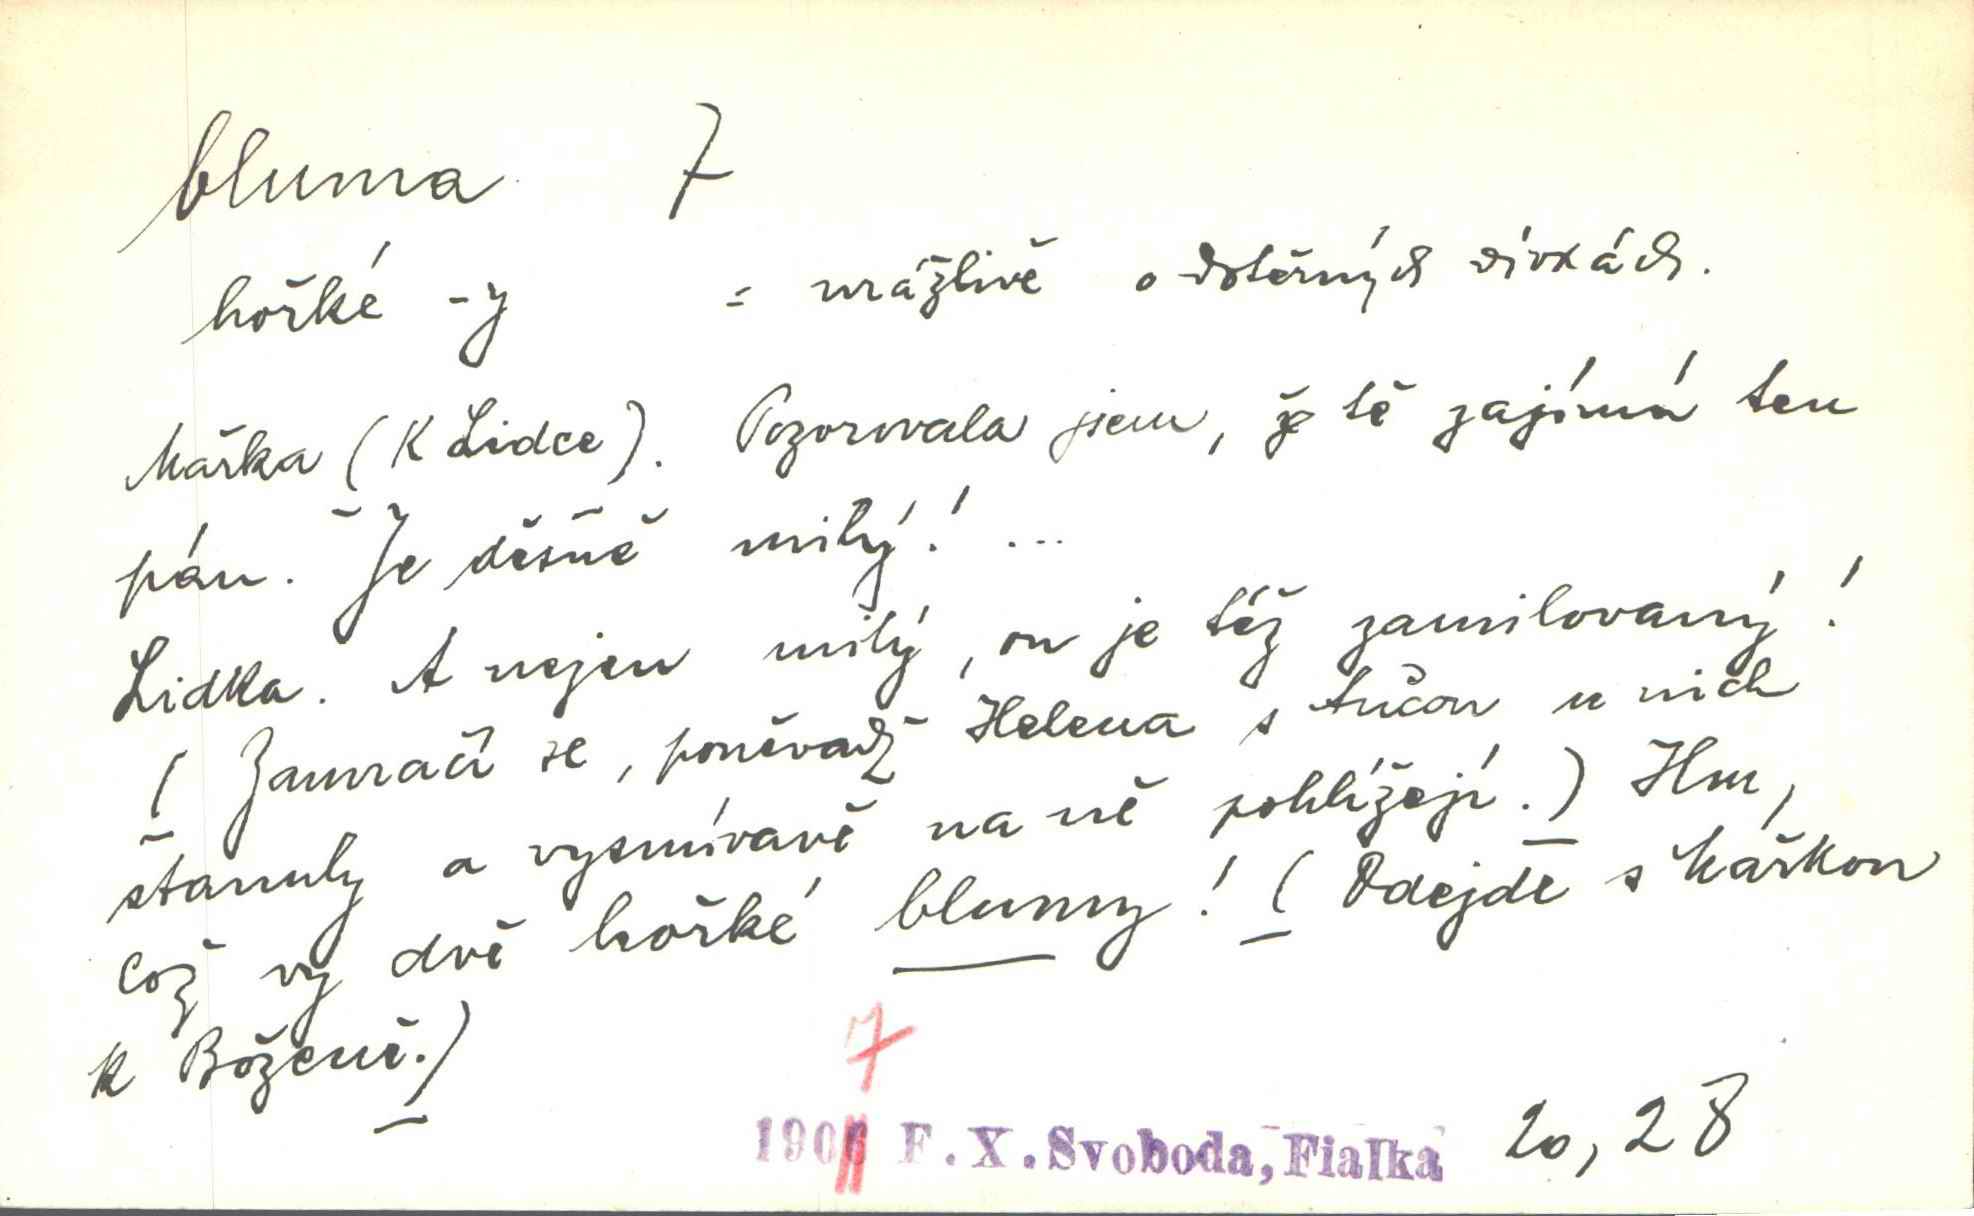 bluma 7
hořké -y = urážlivě o dotěrných dívkách.
Mářka (k Lidce). Pozorovala jsem, že tě zajímá ten
pán. Je děsně milý! ...
Lidka. A nejen milý, on je též zamilovaný!
(Zamračí se, poněvadž Helena s Ančou u nich
stanuly a vysmívavě na ně pohlížejí.) Hm,
což vy dvě hořké blumy! (Odejde s Mářkou
k Boženě.)
7
1906 F. X. Svoboda, Fialka 20, 28